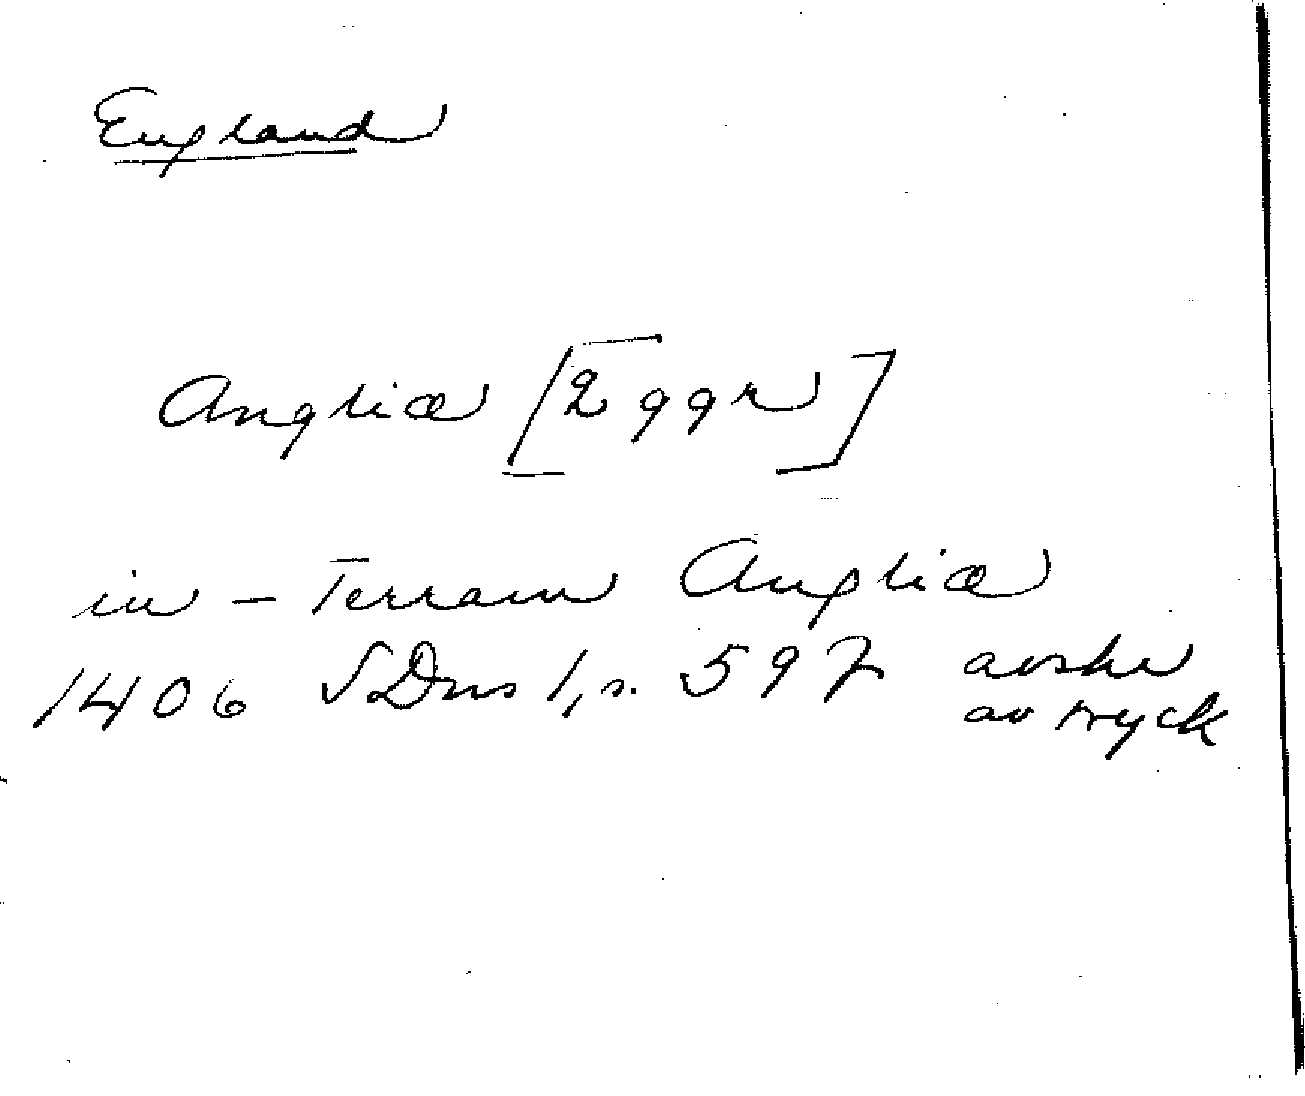 England
Angliæ [2 ggr]
in - Terram Angliæ
1406 SDns 1, s. 597 avskr
av tryck